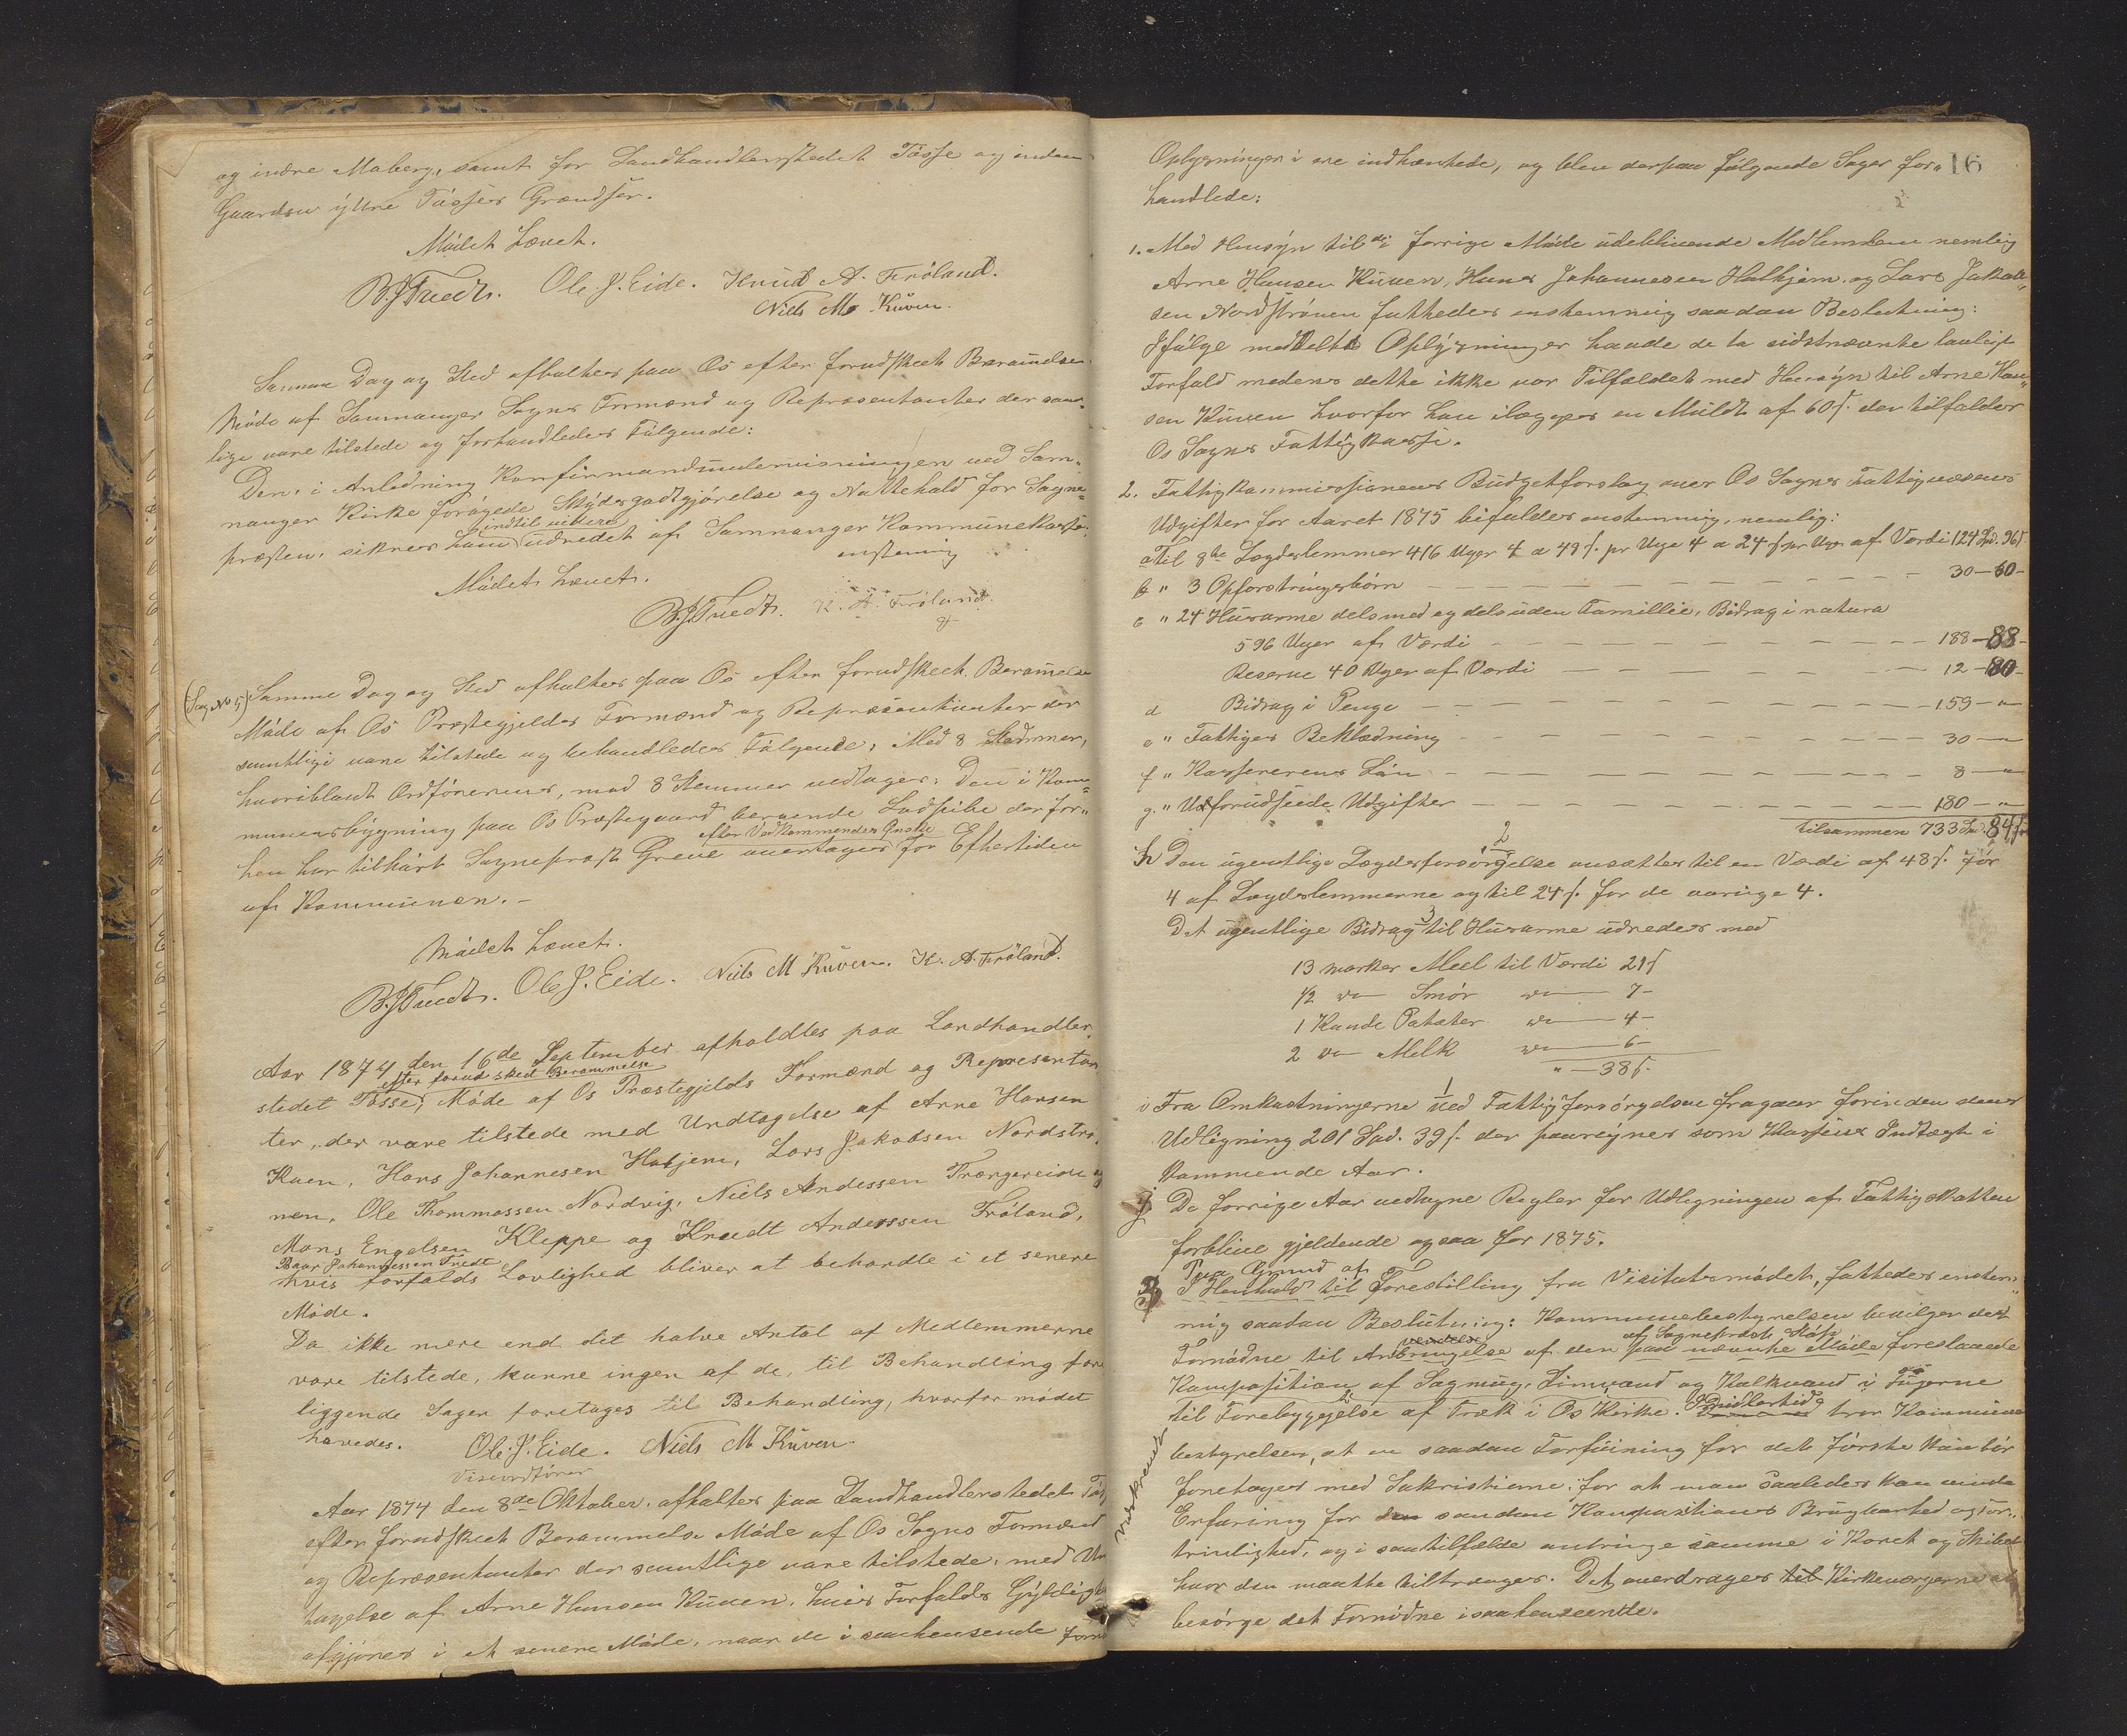 og indre Moberg, samt for Landhandlerstedet Tøsse og inden
Gaarden ÿttre Tøsses Grændser.
Mødet hævet.
B. J. Tuedt. Ole. J. Eide. Knud A. Frøland.
Niels M. Kuven.
Samme Dag og Sted afholdtes paa Os efter forudskeet Berammelse
Møde af Samnanger Sogns Formænd og Repræsentanter der sam„
lige vare tilstede og forhandledes Følgende:
Den i Anledning Konfirmandundervisningen ved Sam„
nanger Kirke forøgede Skydsgodtgjørelse og Nattehold for Sogne„
præsten, sikres ham indtil videre udredet af Samnanger Kommunekasse.
enstemig
Mødet hævet.
B. J. Tuedt. K. A. Frøland.
(Sag No 5) Samme Dag og Sted afholtes paa Os efter forudskeet Berammelse
Møde af Os Præstegjeldes Formænd og Repræsentanter der
samtlige vare tilstede og behandledes Følgende: Med 8 Stemmer,
hvoriblandt Ordførerens, mod 8 Stemmer vedtoges: Den i Kom„
munensbygning paa Os Præstegaard beroende Ladpibe der for„
hen har tilhørt Sogneprest Greve overtages efter Vedkommendes Ønske for Eftertiden
af Kommunen. –
Mødet hævet.
B. J. Tuedt. Ole J. Eide. Niels M Kuven. K. A. Frøland.
Aar 1874 den 16de September afholdtes paa Landhandler„
stedet Tøsse, efter forud skeed Berammelse Møde af Os Præstegjelds Formænd og Repræsentan
ter, der vare tilstede med Undtagelse af Arne Hansen
Kuen, Hans Johannesen Hatjem, Lars Jakobsen Nordstrø„
nen, Ole Thommassen Nordvig, Niels Andessen Trængereide og
Mons Engelsen Kleppe og Knudt Anderssen Frøland,
Baar Johannessen Tuedt
hvis forfalds Lovlighed bliver at behandle i et senere
Møde.
Da ikke mere end det halve Antal af Medlemmerne
vare tilstede, kunne ingen af de, til Behandling fore
liggende Sager foretages til Behandling, hvorfor mødet
hævedes. Ole. J. Eide. Niels M. Kuven.
Viseordfører
Aar 1874 den 8de Oktober, afholtes paa Landhandlerstedet Tøs
efter forudskeet Berammelse Møde af Os Sogns Formænd
og Repræsentanter der samtlige vare tilstede, med Und
tagelse af Arne Hansen Kuven, hvis Forfalds Gyldighed
afgjøres i et senere Møde, naar de i saahenseende forn
16
Oplysninger i ere indhentede, og blev derpaa følgende Sager for„
handlede:
1. Med Hensyn til de i forrige Møde udeblivende Medlemmer nemlig
Arne Hansen Kuven, Hans Johannesen Hatkjem, og Lars Jakob„
sen Nordstrønen fattedes enstemmig saadan Beslutning:
Ifølge meddelte Oplysninger havde de to sidstnævnte lovligt
Forfald medens dette ikke var Tilfældet med Hensyn til Arne Han„
sen Kuven hvorfor han ilægges en Mulkt af 60 s. der tilfalder
Os Sogns Fattigkasse.
2. Fattigkommissionens Budgetforslag over Os Sogns Fattigvæsens
Udgifter for Aaret 1875 bifaldes enstemmig, nemlig:
a Til 8de Lægdslemmer 416 Uger 4 a 48 s. pr Uge 4 a 24 s pr Uge af Værdi 124 Spd. 96 s
b " 3 Opfostringsbørn – – – 30 – 60 –
c " 24 Husarme dels med og dels uden Famillie, Bidrag i natura
596 Uger af Værdi – – – 188 – 88 –
Reserve 40 Uger af Værdi – – – 12 – 80 –
d Bidrag i Penge – – – 159 – "
e " Fattiges Beklædning – – – 30 – "
f " Kassererens Løn – – – 8 – "
g. " Uforudseede Udgifter – – – 180 – "
tilsammen 733 Spd. 84 s
h Den ugentlige Lægdsforsørgelse ansættes til en Værdi af 48 s. for
4 af Lægdslemmerne og til 24 s. for de øvrige 4.
Det ugentlige Bidrag til Husarme udredes med
13 marker Meel til Værdi 21 s
1/2 " Smør " 7 –
1 Kande Potæter " 4 –
2 " Melk " 6 –
" – 38 s.
i Fra Omkostningerne ved Fattigforsørgelsen fragaar forinden dens
Udligning 201 Spd. 39 s. der paaregnes som Kassens Indtægt i
kommende Aar.
j De forrige Aar vedtagne Regler for Udligningen af Fattigskatten
forblive gjeldende ogsaa for 1875.
Paa Grund af
3 I Henhold til Forestilling fra Visitatsmødet, fattedes enstem„
mig saadan Beslutning: Kommunebestyrelsen bevilger det
Fornødne til Anbringelse af den paa nævnte Møde af Sogneprest foreslaaede
Komposition af Sagmug, Limvand og Kalkvand i Fugerne
til Forebyggelse af Træk i Os Kirke. Imidlertid tror Kommune
bestyrelsen, at en saadan Forføining for det første kun bør
foretages med Sakristierne, for at man saaledes kan vinde
Erfaring for saadan Kompositions Brugbarhed og For„
trinlighed, og i saa tilfælde anbringe samme i Koret og Skibet
hvor den maatte tiltrænges. Det overdrages til Kirkeværgerne at
besørge det Fornødne i saahenseende.